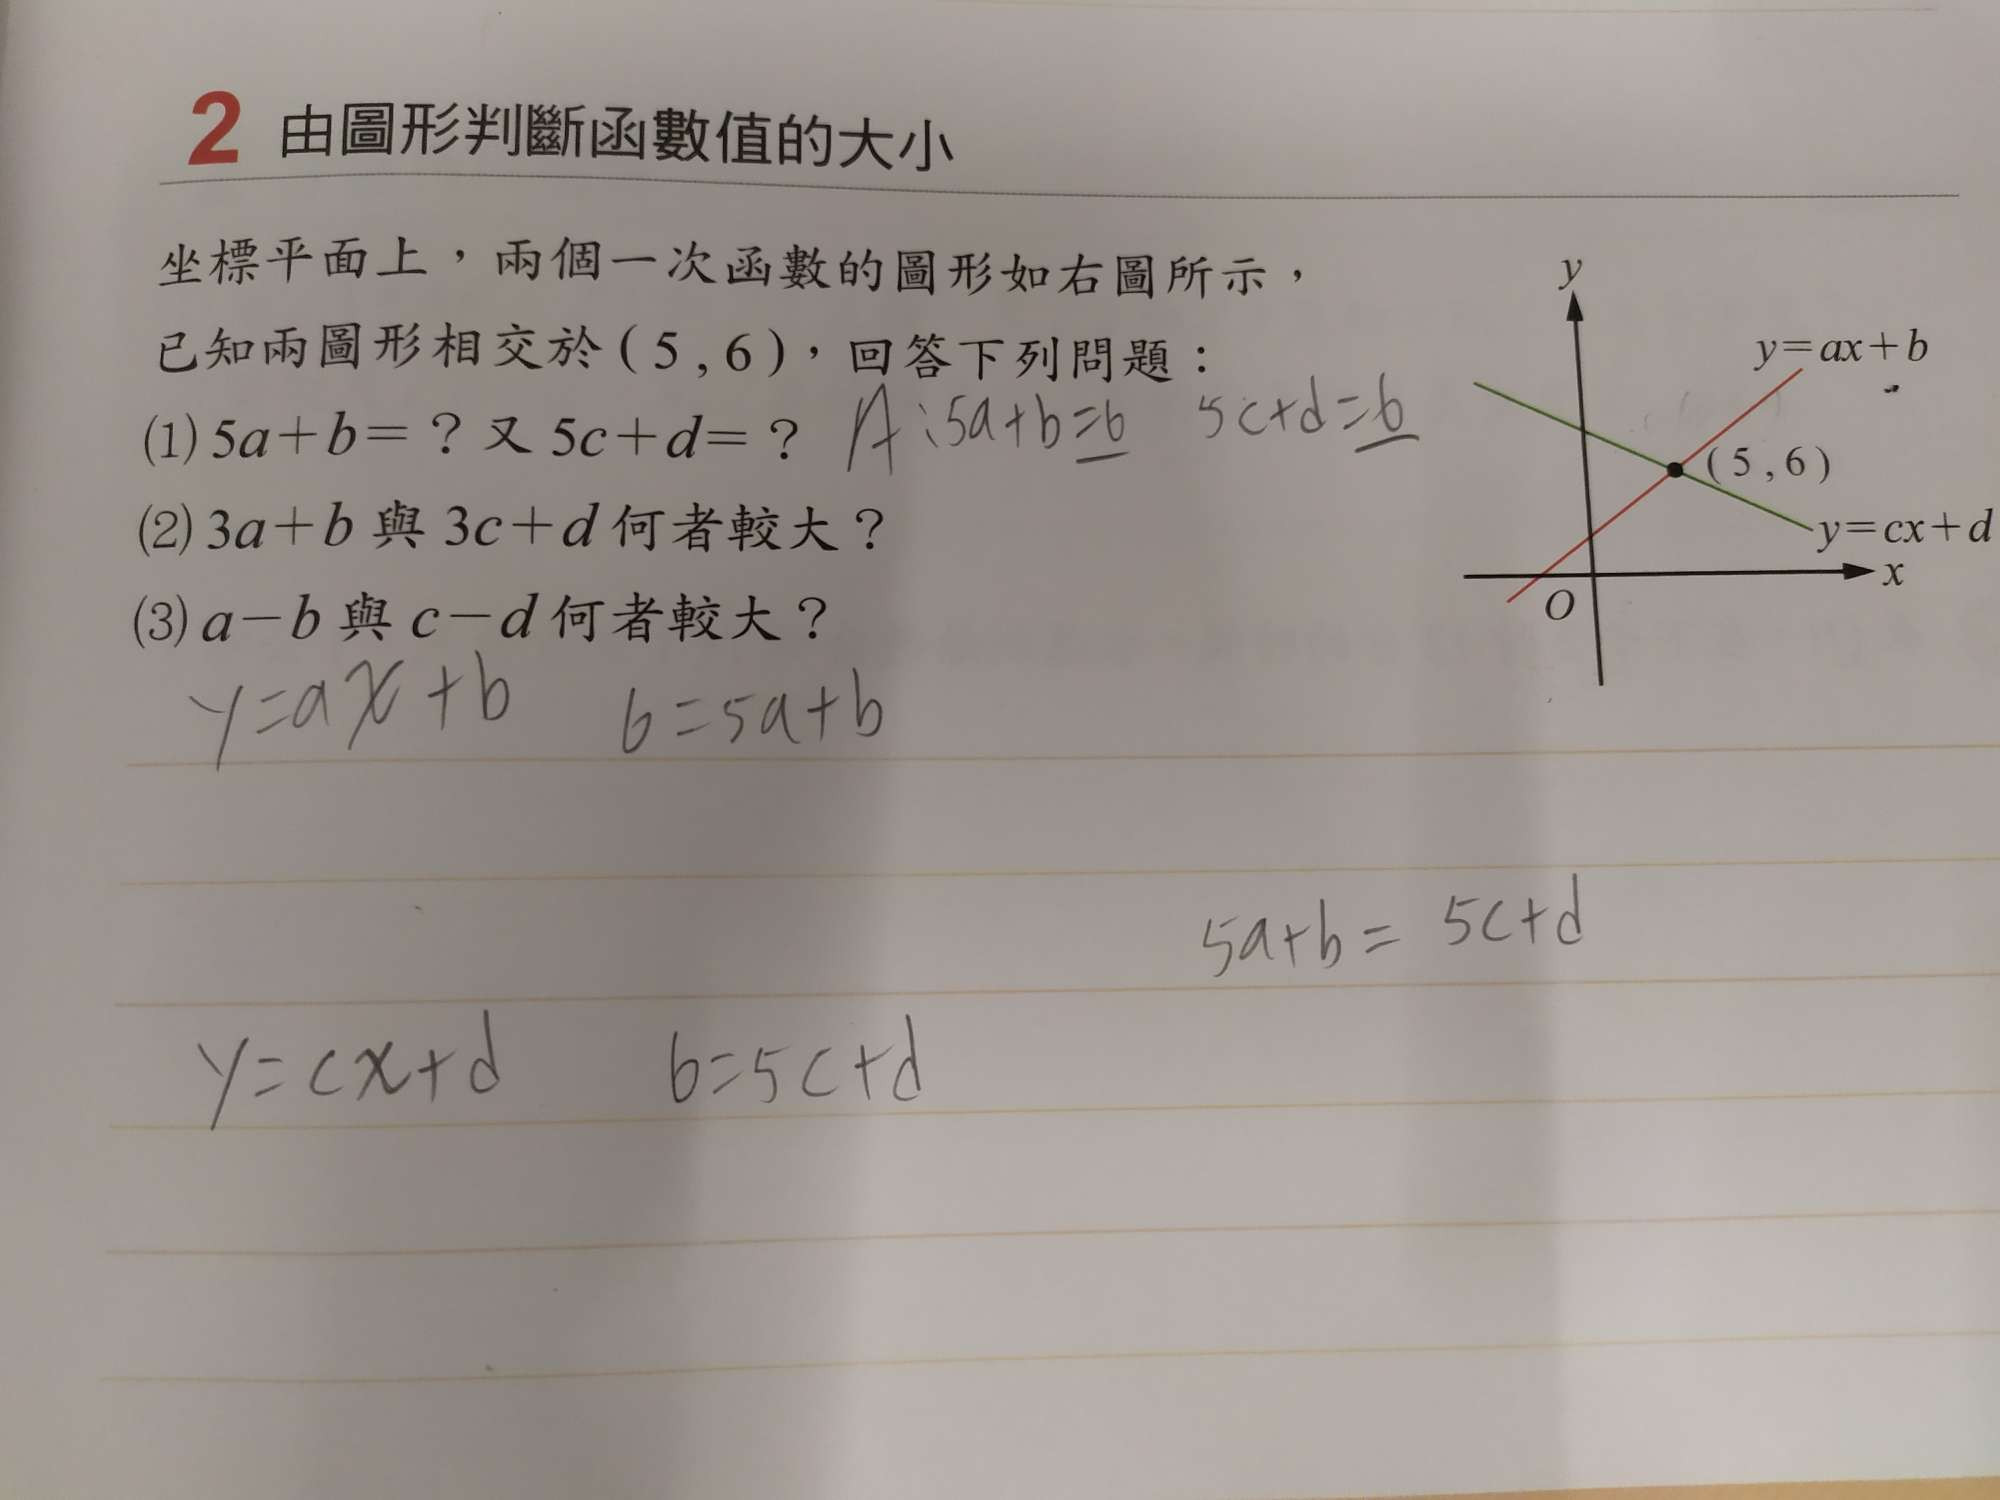 2 由圖形判斷函數值的大小
坐標平面上，兩個一次函數的圖形如右圖所示，
已知兩圖形相交於(5,6)，回答下列問題：
(1) 5a+b=？又 5c+d=？ A:5a+b=6 5c+d=6
(2) 3a+b 與 3c+d 何者較大？
(3) a-b 與 c-d 何者較大？
y
y=ax+b
(5,6)
y=cx+d
x
O
y=ax+b 6=5a+b
5a+b= 5c+d
y=cx+d 6=5c+d